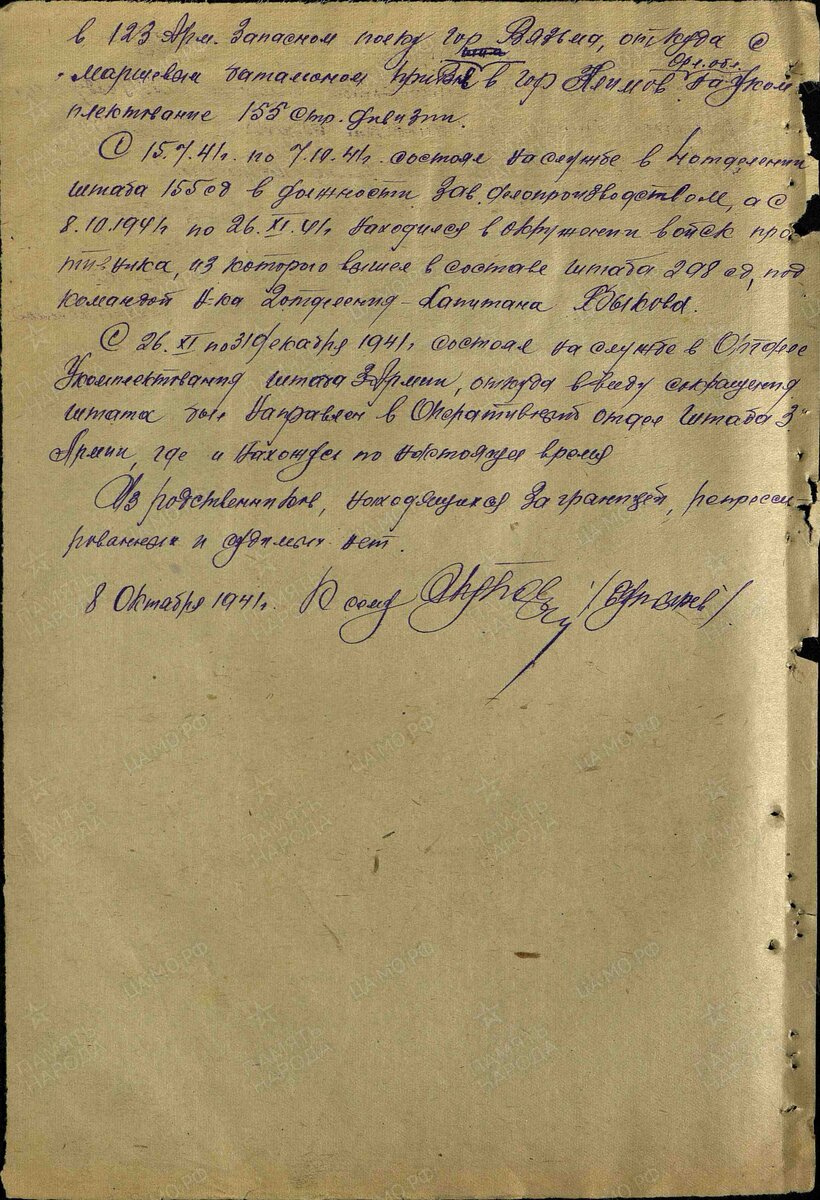 в 123 Арм. Запасном полку гор Вязьма, откуда с
Орл. обл.
маршевым батальоном прибыл в гор Климов на уком
плектование 155 стр. дивизии.
С 15.7.41г. по 7.10.41г. состоял на службе в 4 отделении
штаба 155 сд в должности Зав. делопроизводством, а с
8.10.1941г по 26.XI.41г находился в окружении войск про
тивника, из которого вышел в составе штаба 298 сд, под
командой н-ка 2 отделения - Капитана Языкова.
С 26.XI по 31 декабря 1941г состоял на службе в Отделе
Укомплектования штаба 3 Армии, откуда ввиду сокращения
штата был направлен в Оперативный отдел штаба 3
Армии, где и нахожусь по настоящее время
Из родственников, находящихся за границей, репресси-
рованных и судимых нет.
8 Октября 1941г. К сему
ПАМЯТЬ НАРОДА
ЦАМО.РФ